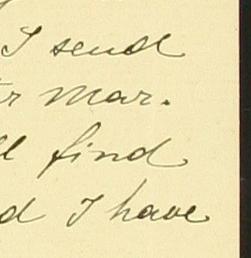 I send
r Mar.
ll find
d I have